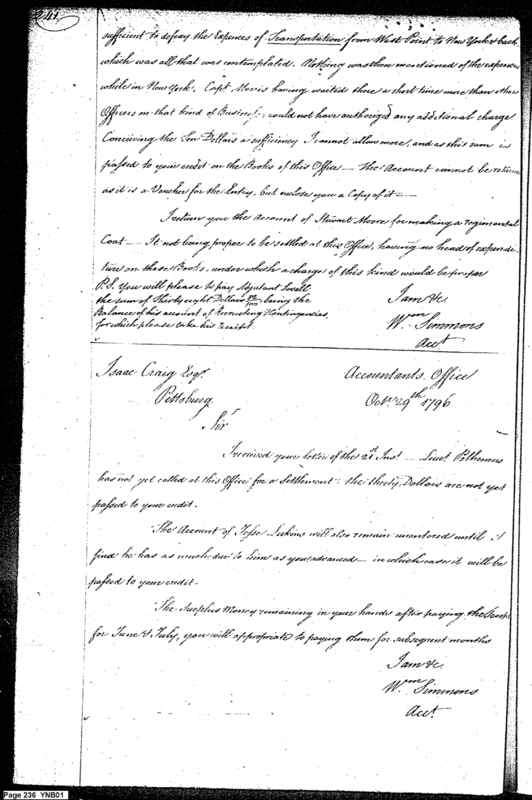 241
sufficient to defray the Expences of Transportation from West Point to New York & back
which was all that was contemplated. Nothing was then mentioned of the expences
while in New York. Capt Morris having waited there a short time more than other
Officers on that kind of Business, could not have authorized any additional charge
Conceiving the Ten Dollars a sufficiency I cannot allow more, and as this sum is
passed to your credit on the Books of this Office — The Account cannot be return
as it is a Voucher for the Entry, but enclose you a Copy of it —
I return you the Account of Stewart Moore for making a regimental
Coat — It not being proper to be settled at this Office, having no head of expendi-
ture on these Books, under which a charge of this kind would be proper
P.S. You will please to pay Adjutant
the sum of Thirty eight Dollars being the
Balance of his account of Recruiting Contingencies,
for which please take his receipt.
I am &c.
Wm Simmons
Acct.
Isaac Craig Esqr.
Pittsburg
Accountants Office
Octr. 29th 1796
Sir
I received your letter of the 21st Inst — Lieut. Polhemus
has not yet called at this Office for a Settlement: the thirty Dollars are not yet
passed to your credit.
The Account of Jesse Lukins will also remain unentered until I
find he has as much due to him as you advanced — in which case it will be
passed to your credit —
The Surplus Money remaining in your hands after paying the Troops
for June & July, you will appropriate to paying them for subsequent months
I am &c.
Wm Simmons
Acct.
Page 236 YNB01